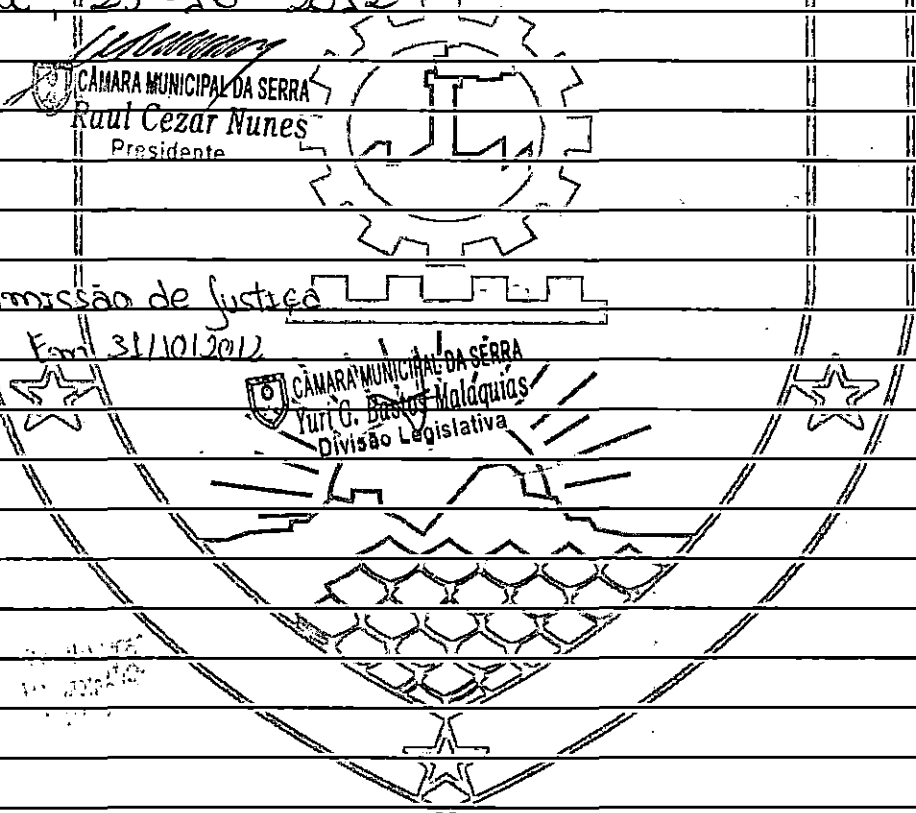 CÂMARA MUNICIPAL DA SERRA
Raul Cezar Nunes
Presidente
missão de Justiça
Em 31/10/2012
CÂMARA MUNICIPAL DA SERRA
Yuri G. Bastos Maláquias
Divisão Legislativa